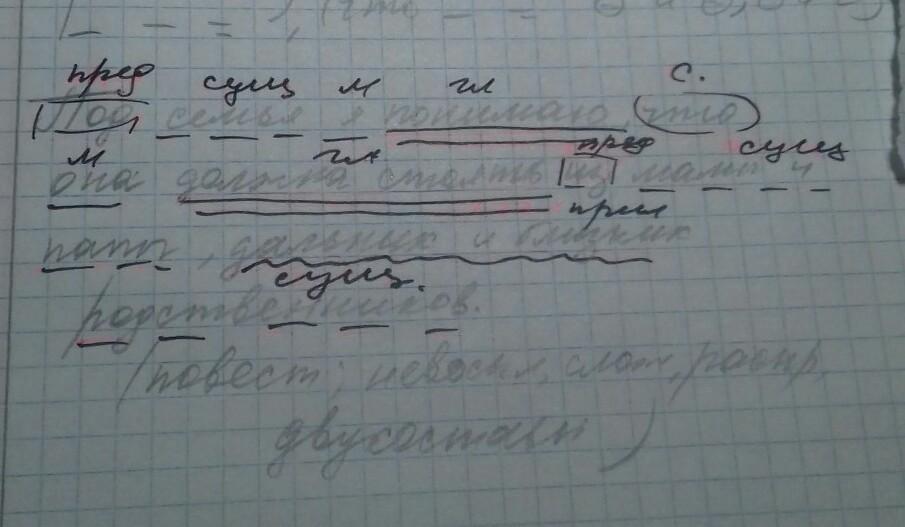 (что
пред сущ м гл с.
Под семья я понимаю, что
м гл пред сущ
она должна стоять из мамы и
прил
папы, дальних и близких
сущ.
родственников.
(повест; невоскл, слож, распр,
двухоставн)